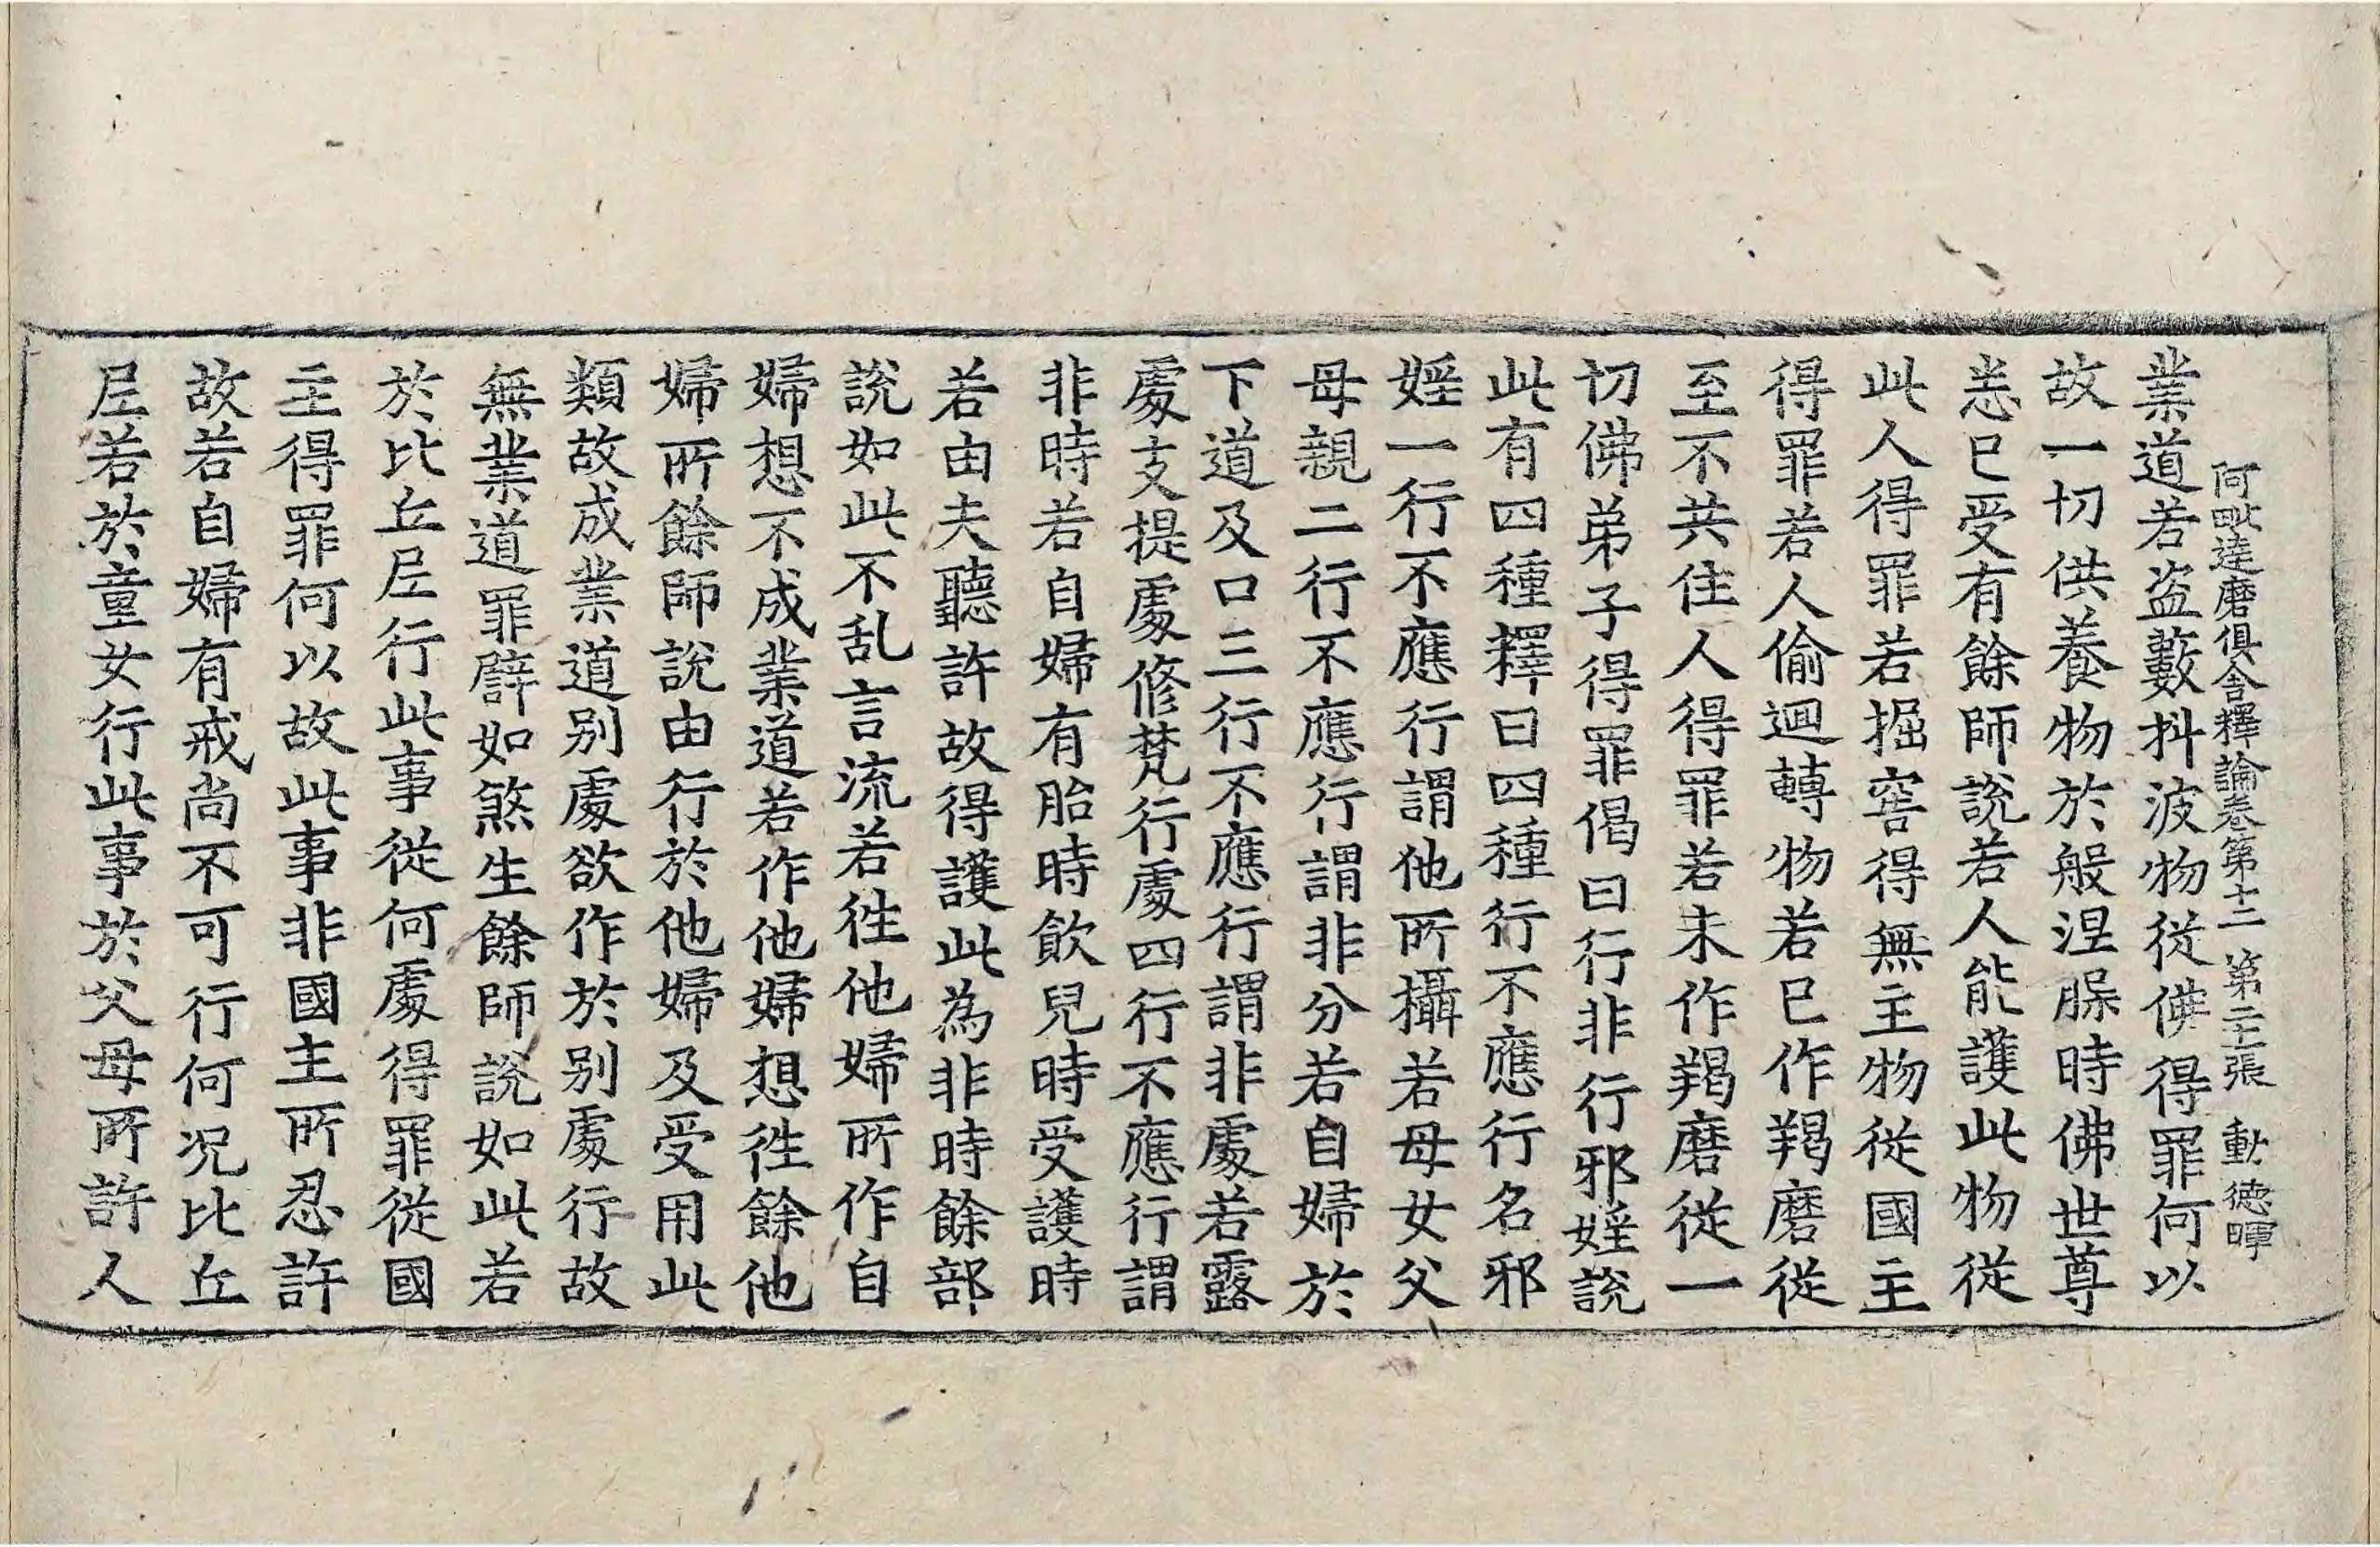 阿毗達磨俱舍釋論卷第十二 第二十張 動 德暉
業道若盗藪抖波物從佛得罪何以
故一切供養物於般涅脲時佛世尊
恙已受有餘師說若人能護此物從
此人得罪若掘窖得無主物從國主
得罪若人偷迴轉物若已作羯磨從
至不共住人得罪若未作羯磨從一
切佛弟子得罪偈曰行非行邪婬說
此有四種釋曰四種行不應行名邪
婬一行不應行謂他所攝若母女父
母親二行不應行謂非分若自婦於
下道及口三行不應行謂非處若露
處支提處修梵行處四行不應行謂
非時若自婦有胎時飲兒時受護時
若由夫聽許故得護此為非時餘部
說如此不乱言流若徃他婦所作自
婦想不成業道若作他婦想徃餘他
婦所餘師說由行於他婦及受用此
類故成業道别處欲作於别處行故
無業道罪譬如煞生餘師說如此若
於比丘尼行此事從何處得罪從國
主得罪何以故此事非國主所忍許
故若自婦有戒尚不可行何况比丘
尼若於童女行此事於父母所許人